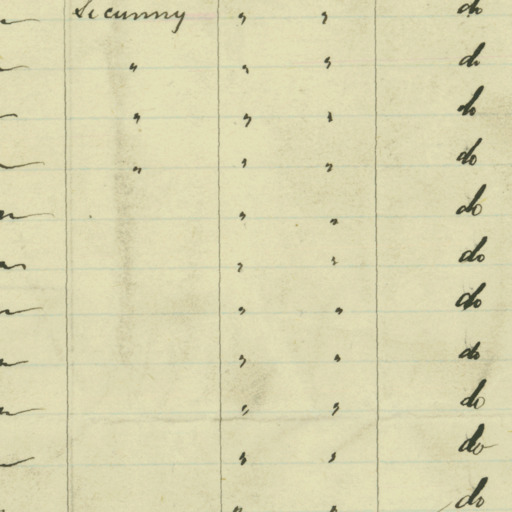 Secunny " " do
" " " do
" " " do
" " " do
" " do
" " do
" " do
" " do
" " do
" " do
" " do